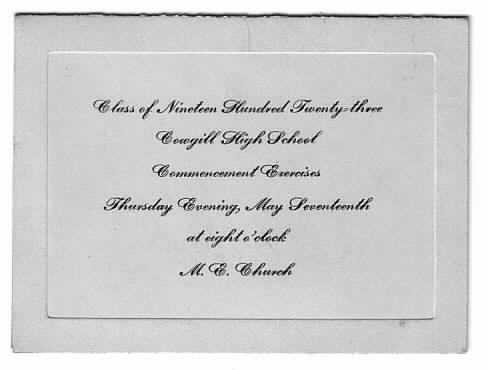 Class of Nineteen Hundred Twenty-three
Cowgill High School
Commencement Exercises
Thursday Evening, May Seventeenth
at eight o'clock
M. E. Church